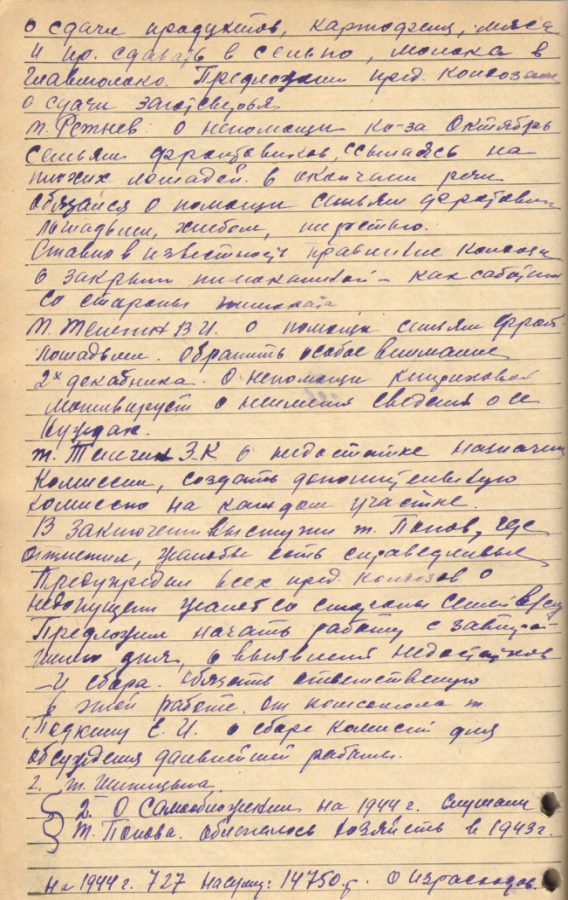 о сдачи продуктов, картофеля, мяса
и пр. сдавать в сельпо, молока в
Главмолоко. Предложил пред. колхозам
о сдачи
т. Режнев о непомощи к-за Октябрь
семьям фронтовиков, ссылаясь на
плохих лошадей. в окончании речи
обязался о помощи семьям фронтови
лошадьми, хлебом,
Ставил в известность правление колхоза
о закрыти – как
со стороны
т. Тенегин В И. о помощи семьям фронт.
лошадьми. Обратить особое внимание
2х декабника. О непомощи
мотивирует о неимения сведения о ее
нуждах.
т. Тенегин З.К о недостатке назначен
комиссии, создать дополнительную
комиссию на каждом участке.
В заключении выступил т. Попов, где
отметил, жалобы есть справедливые
Предупредил всех пред. колхозов о
недопущени жалоб со стороны семей в/сл
Предложил начать работу с завтра-
шнего дня, о выявлении недостатков
и сбора. Обязать ответственную
в этой работе от комсомола т
Подкину Е. И. о сборе комисси для
обсуждения дальнейшей работы.
2. т.
2. О самообложении на 1944 г. слушали
т. Попова. хозяйств в 1943 г.
На 1944 г. 727 на сумму: 14750 р. О израсходов.